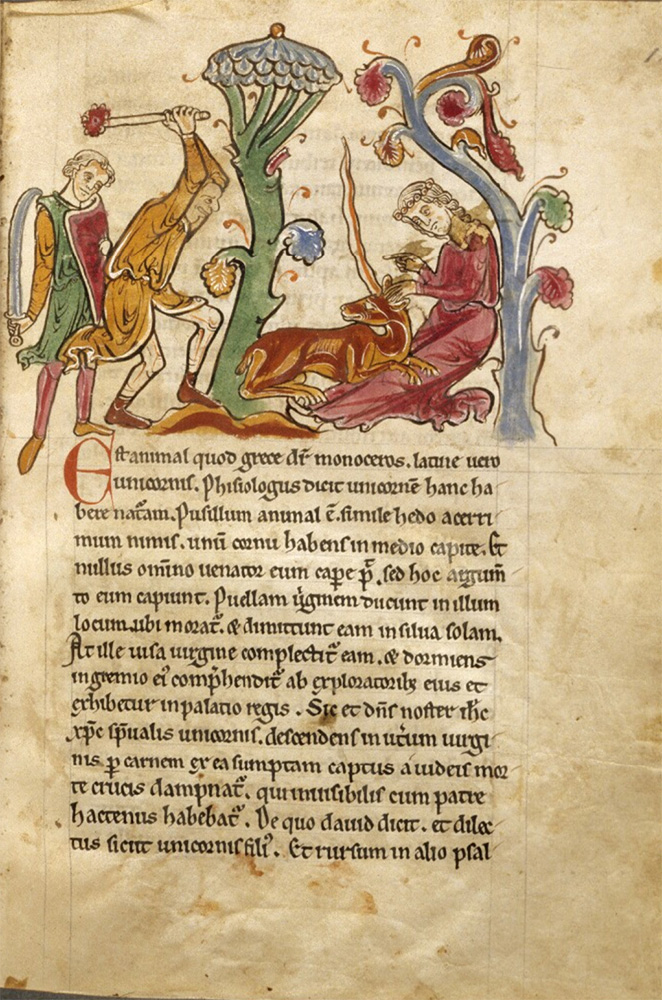 Est animal quod grece dr̄ monoceros. latine uero
unicornis. Phisiologus dicit unicornē hanc ha
bere nat̄am. Pusillum animal ē. simile hedo acerri
mum nimis. unū cornu habens in medio capite. Et
nullus omīno uenator eum cap̄e p̄t. sed hoc argum̄
to eum capiunt. Puellam ūginem ducunt in illum
locum ubi morat̄. & dimittunt eam in silua solam.
At ille uisa uirgine complectit̄ eam. & dormiens
in gremio ei᾽ comp̄hendit̄ ab exploratorib; eius et
exhibetur in palatio regis. Sic et dn̄s noster ih̄c
xp̄c sp̄ualis unicornis. descendens in ut̄um uirgi
nis p̱ carnem ex ea sumptam captus a iudeis mor
te crucis dampnat̄. qui inuisibilis cum patre
hactenus habebat̄. De quo dauid dicit. et dilec
tus sicut unicornis fili᾽. Et rursum in alio psal